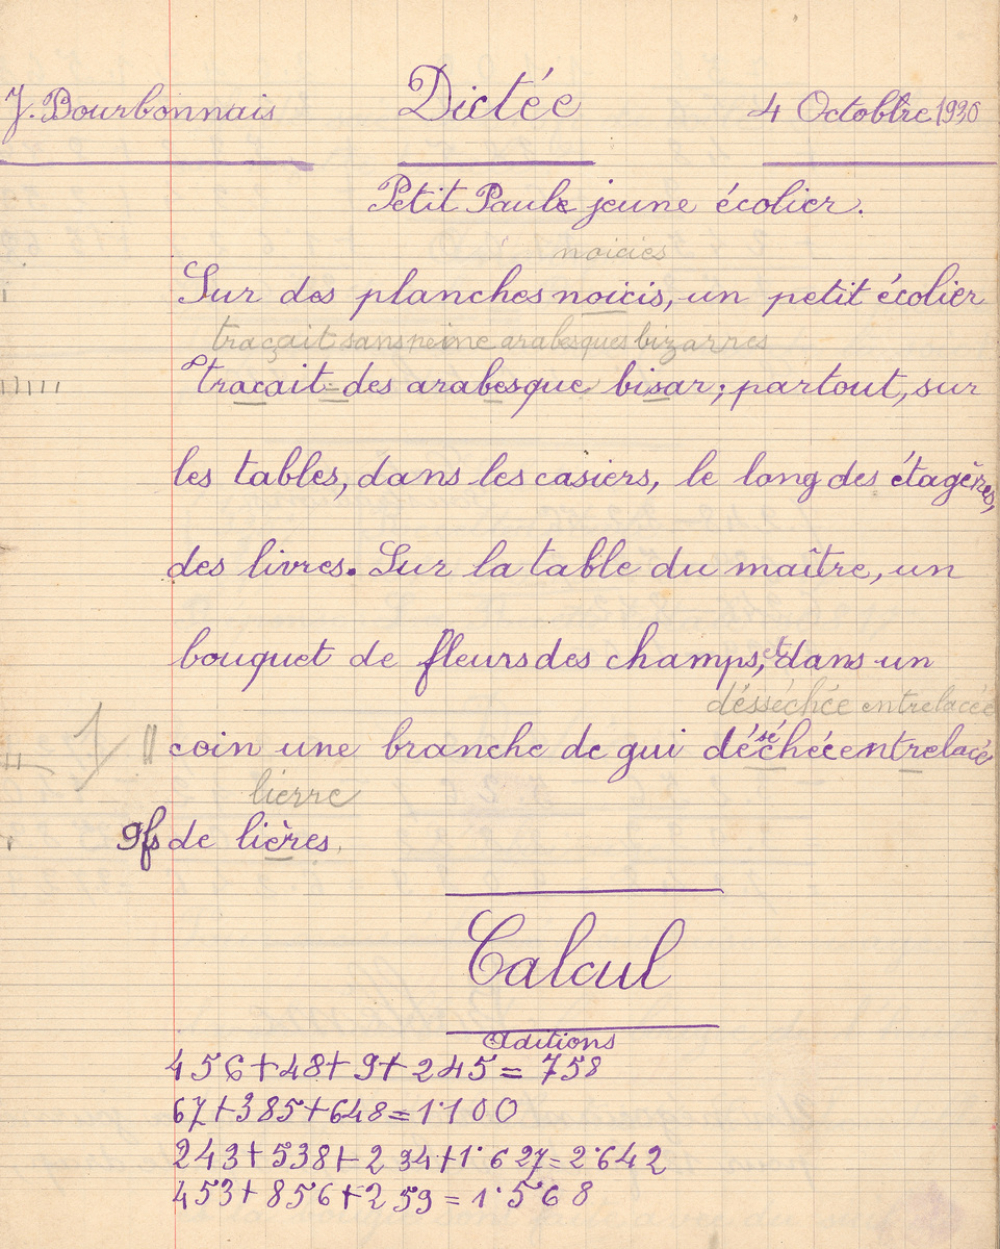 J. Bourbonnais Dictée 4 Octobbre 1930
Petit Paule jeune écolier.
noicies
Sur des planches noicis, un petit écolier
traçait sans peine arabesques bizarres
traçait des arabesque bisar; partout, sur
les tables, dans les casiers, le long des étagères,
des livres. Sur la table du maître, un
bouquet de fleurs des champs, et dans un
désséchée entrelacée
coin une branche de gui déséchée entrelacé
lierre
9fs de lières.
Calcul
Aditions
456+48+9+245=758
67+385+648=1.100
243+538+234+1.627=2.642
453+856+259=1.568